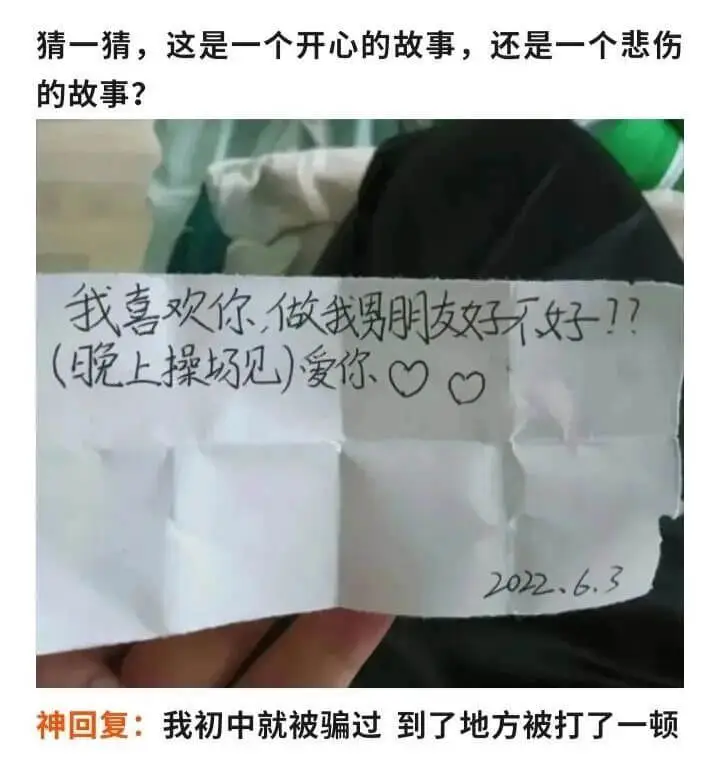 猜一猜，这是一个开心的故事，还是一个悲伤
的故事？
我喜欢你,做我男朋友好不好??
(晚上操场见)爱你♡♡
2022.6.3
神回复：我初中就被骗过 到了地方被打了一顿